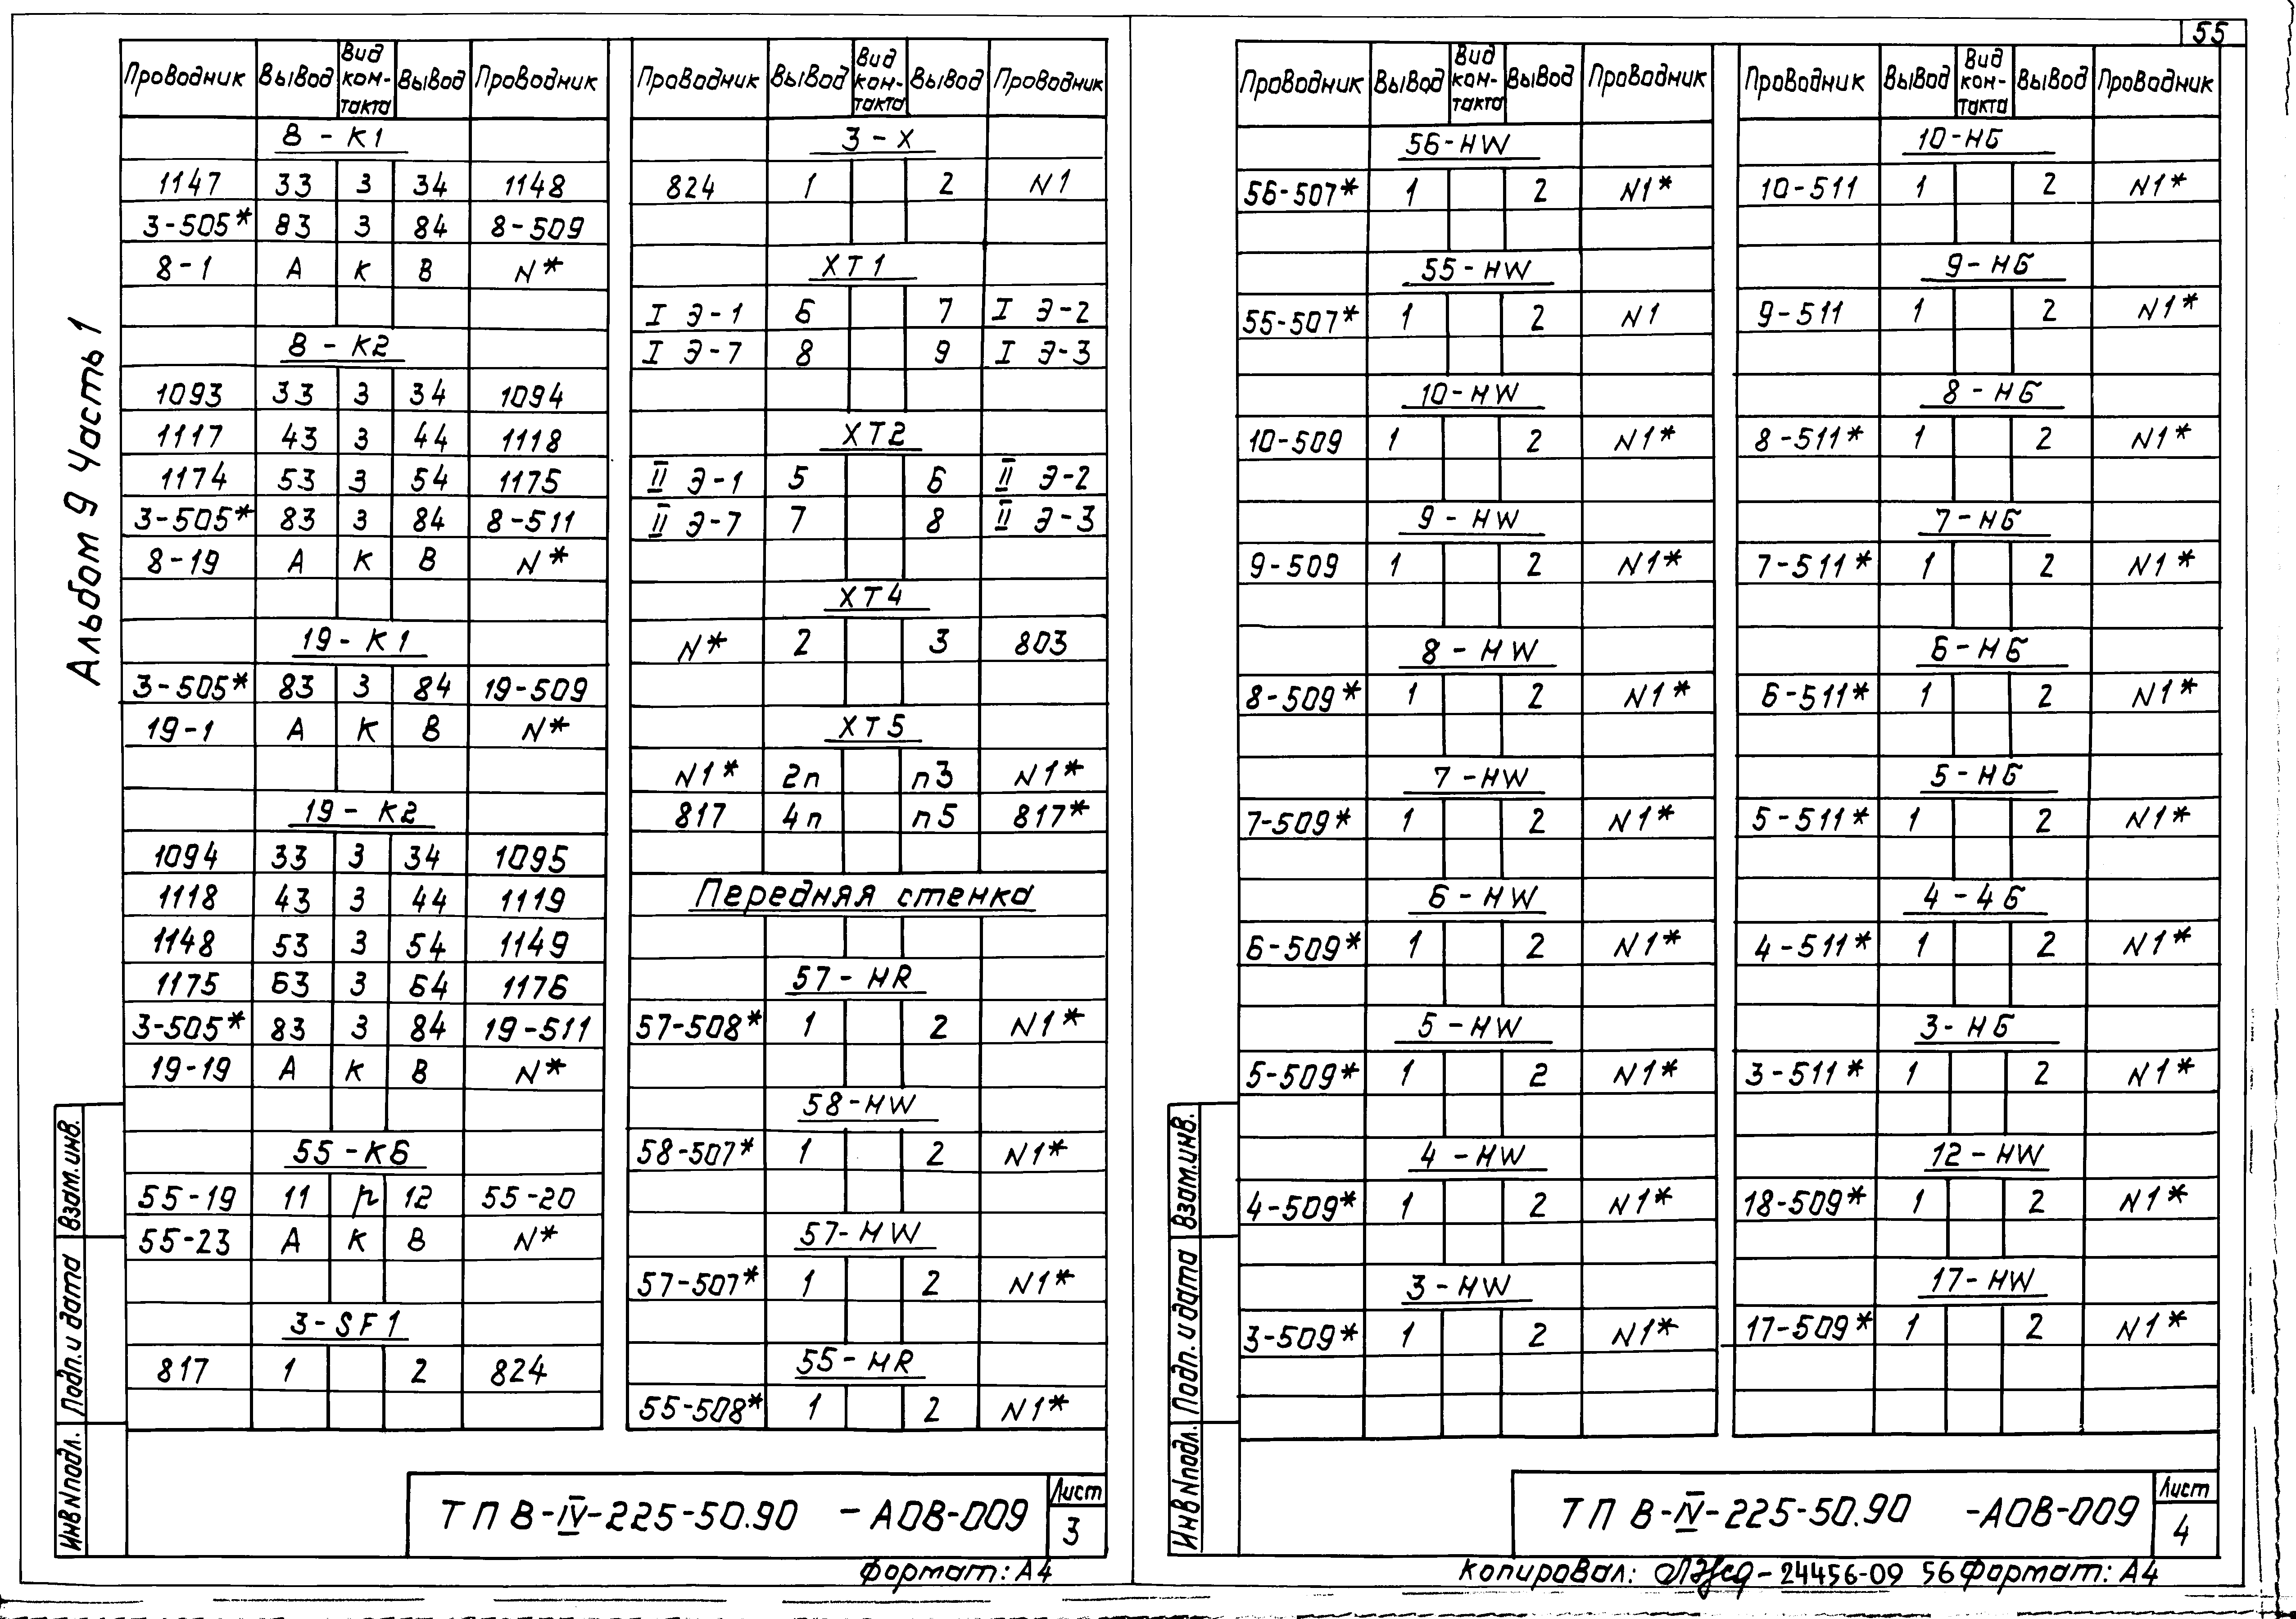 55
Альбом 9 Часть 1
Проводник Вывод Вид контакта Вывод Проводник
8-К1
1147 33 З 34 1148
3-505* 83 З 84 8-509
8-1 А К В N*
8-К2
1093 33 З 34 1094
1117 43 З 44 1118
1174 53 З 54 1175
3-505* 83 З 84 8-511
8-19 А К В N*
19-К1
3-505* 83 З 84 19-509
19-1 А К В N*
19-К2
1094 33 З 34 1095
1118 43 З 44 1119
1148 53 З 54 1149
1175 63 З 64 1176
3-505* 83 З 84 19-511
19-19 А К В N*
55-К6
55-19 11 р 12 55-20
55-23 А К В N*
3-SF1
817 1 2 824
Проводник Вывод Вид контакта Вывод Проводник
3-X
824 1 2 N1
XT1
I Э-1 6 7 I Э-2
I Э-7 8 9 I Э-3
XT2
II Э-1 5 6 II Э-2
II Э-7 7 8 II Э-3
XT4
N* 2 3 803
XT5
N1* 2п п3 N1*
817 4п п5 817*
Передняя стенка
57-HR
57-508* 1 2 N1*
58-HW
58-507* 1 2 N1*
57-HW
57-507* 1 2 N1*
55-HR
55-508* 1 2 N1*
Взам.инв.
Подп.и дата
Инв Nподл.
ТП В-IV-225-50.90 -АОВ-009
Лист
3
Формат: А4
Проводник Вывод Вид контакта Вывод Проводник
56-HW
56-507* 1 2 N1*
55-HW
55-507* 1 2 N1
10-HW
10-509 1 2 N1*
9-HW
9-509 1 2 N1*
8-HW
8-509* 1 2 N1*
7-HW
7-509* 1 2 N1*
6-HW
6-509* 1 2 N1*
5-HW
5-509* 1 2 N1*
4-HW
4-509* 1 2 N1*
3-HW
3-509* 1 2 N1*
Проводник Вывод Вид контакта Вывод Проводник
10-НБ
10-511 1 2 N1*
9-НБ
9-511 1 2 N1*
8-НБ
8-511* 1 2 N1*
7-НБ
7-511* 1 2 N1*
6-НБ
6-511* 1 2 N1*
5-НБ
5-511* 1 2 N1*
4-4Б
4-511* 1 2 N1*
3-НБ
3-511* 1 2 N1*
12-HW
18-509* 1 2 N1*
17-HW
17-509* 1 2 N1*
Взам.инв.
Подп. и дата
Инв Nподл.
ТП В-IV-225-50.90 -АОВ-009
Лист
4
Копировал: -24456-09 56 Формат: А4